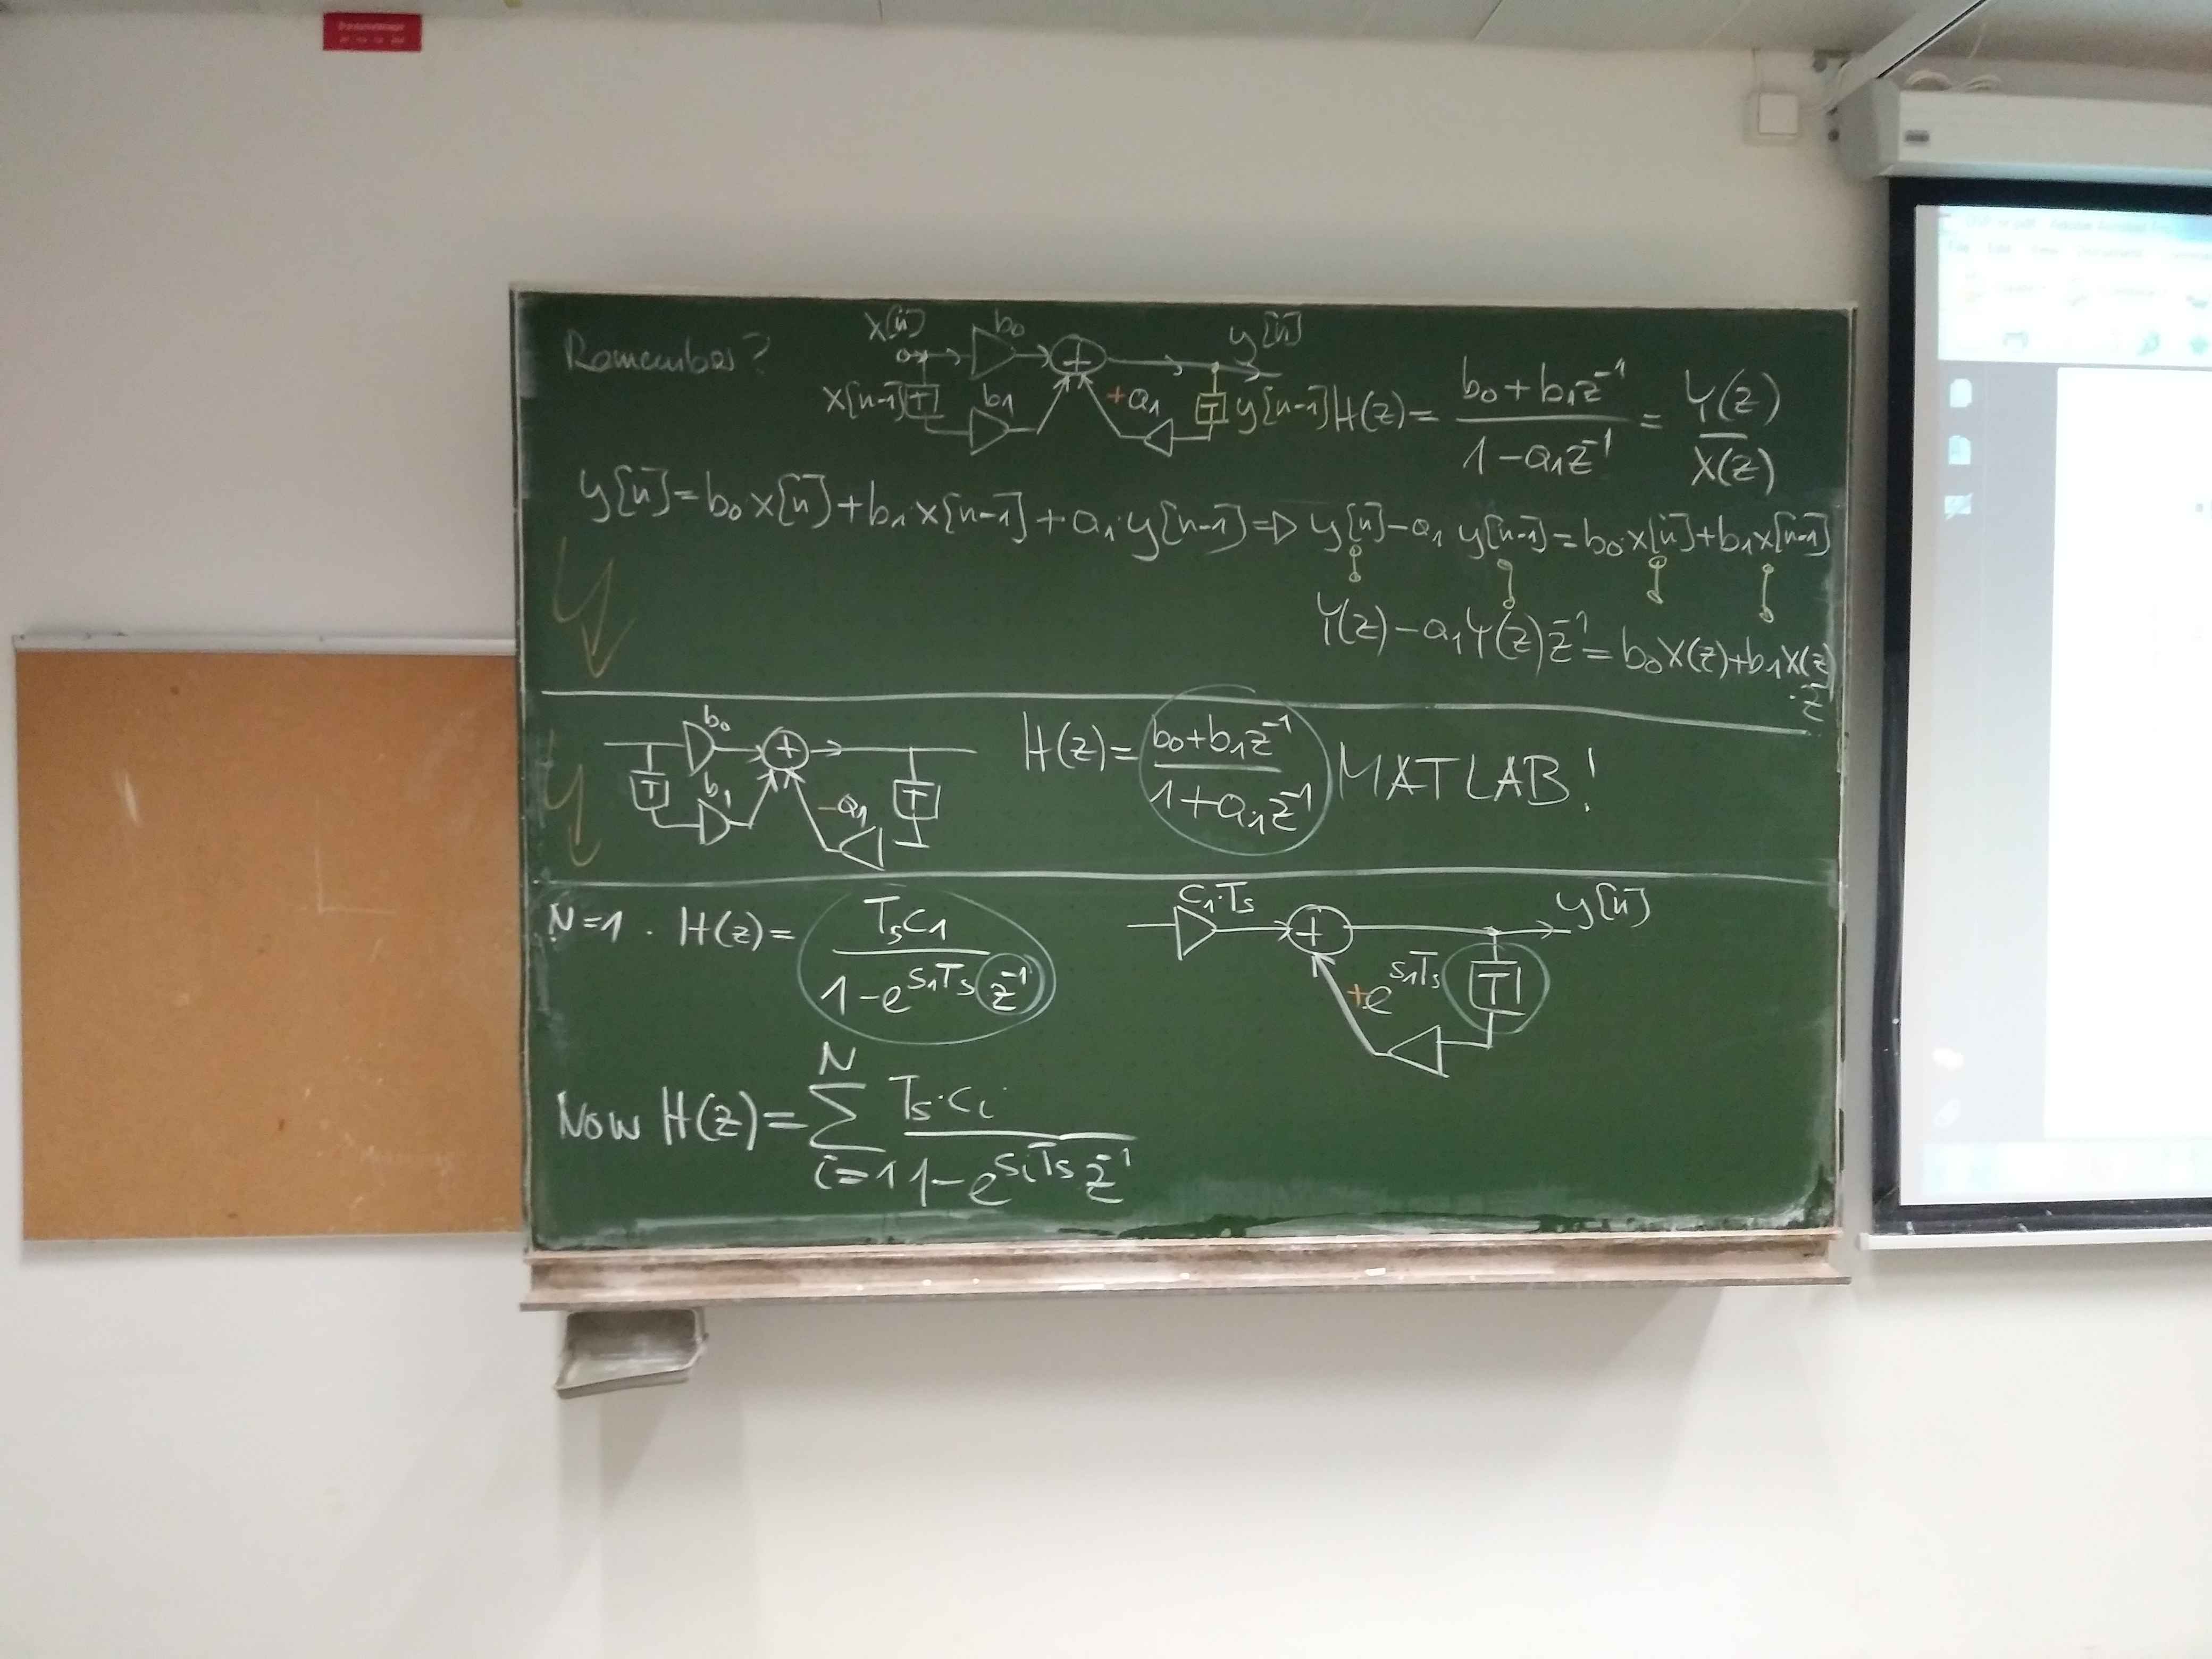 Remember?
x[n] b₀ + y[n]
x[n-1] T b₁ +a₁ T y[n-1] H(z) = (b₀+b₁z⁻¹)/(1-a₁z⁻¹) = Y(z)/X(z)
y[n]=b₀x[n]+b₁·x[n-1]+a₁·y[n-1]=▷ y[n]-a₁ y[n-1]=b₀·x[n]+b₁x[n-1]
Y(z)-a₁Y(z)z⁻¹=b₀X(z)+b₁X(z)
·z⁻¹
b₀ + H(z)= (b₀+b₁z⁻¹)/(1+a₁z⁻¹) MATLAB!
T b₁ -a₁ T
N=1. H(z)= (Tsc₁)/(1-e^{s₁Ts}z⁻¹) c₁·Ts + y[n]
+e^{s₁Ts} T
Now H(z)= ∑_{i=1}^{N} (Ts·cᵢ)/(1-e^{sᵢTs}z⁻¹)